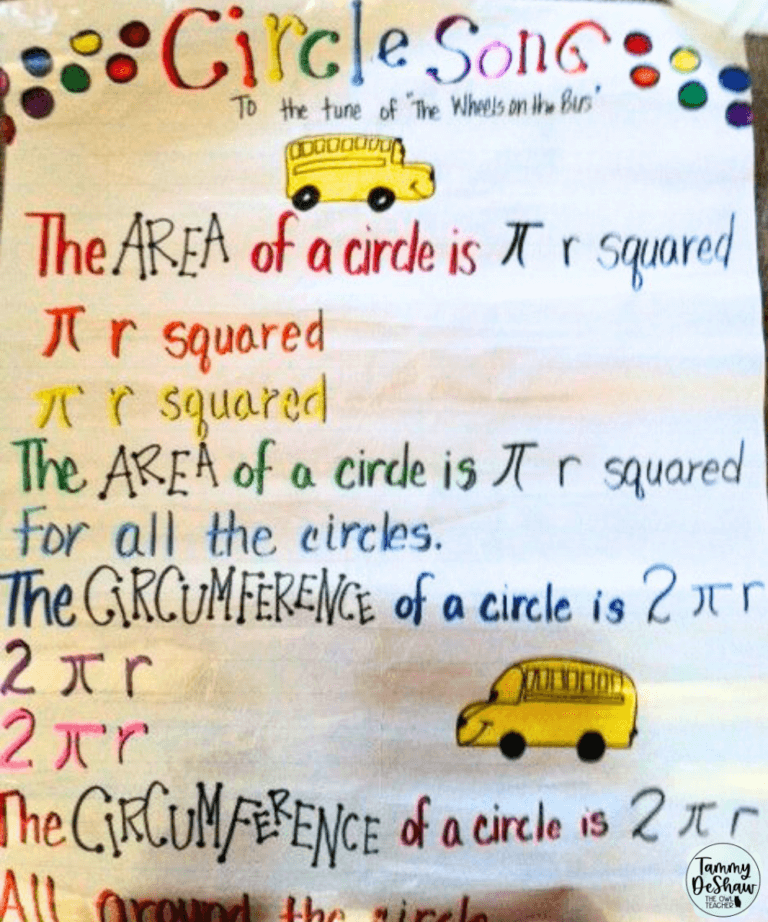 Circle Song
To the tune of "The Wheels on the Bus"
The AREA of a circle is π r squared
π r squared
π r squared
The AREA of a circle is π r squared
for all the circles.
The CIRCUMFERENCE of a circle is 2 π r
2 π r
2 π r
The CIRCUMFERENCE of a circle is 2 π r
All around the circle
Tammy
DeShaw
THE OWL
TEACHER